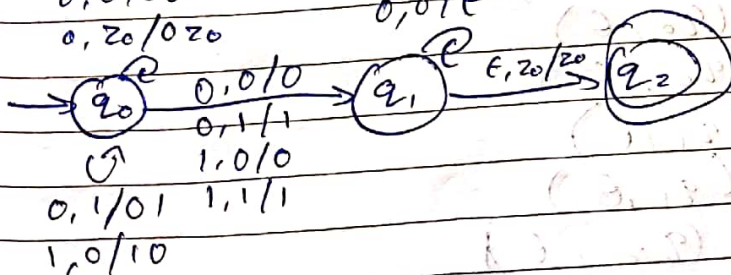 0, z0/0z0
q0
0,0/0
0,1/1
1,0/0
1,1/1
q1
ε, z0/z0
q2
0,1/01
1,0/10